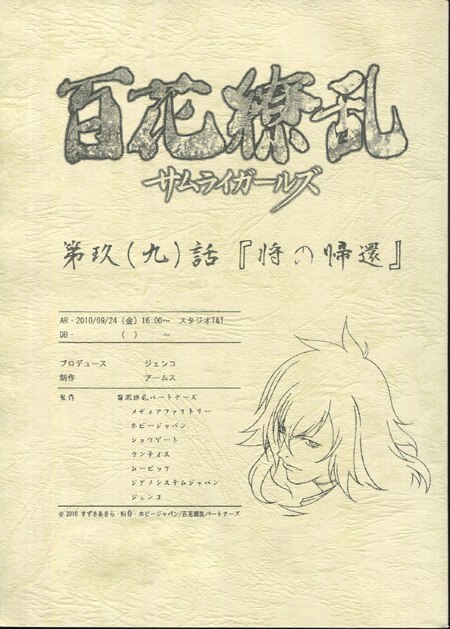 百花繚乱
サムライガールズ
第玖(九)話『将の帰還』
AR・2010/09/24 (金) 16:00～ スタジオT&T
DB・ ( ) : ～
プロデュース ジェンコ
制作 アームス
製作 百花繚乱パートナーズ
メディアファクトリー
ホビージャパン
ショウゲート
ランティス
ムービック
ジアノシステムジャパン
ジェンコ
©2010 すずきあきら・Niθ・ホビージャパン/百花繚乱パートナーズ